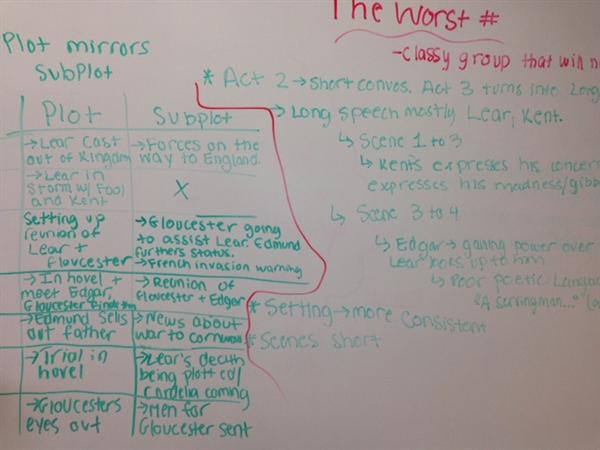 Plot mirrors
SubPlot
Plot
Subplot
→Lear cast
out of Kingdom
→Forces on the
way to England.
→Lear in
Storm w/ Fool
and Kent
X
Setting up
reunion of
Lear +
Gloucester
→Gloucester going
to assist Lear. Edmund
furthers status.
→French invasion warning
→In hovel +
meet Edgar,
Gloucester
→Reunion of
Gloucester + Edgar
→Edmund sells
out father
→News about
war to Cornwall
→Trial in
hovel
→Lear's death
being plotted/
Cordelia coming
→Gloucesters
eyes out
→Men for
Gloucester sent
The Worst #
-classy group that will
* Act 2 → short convos. Act 3 turns into
→ Long speech mostly Lear, Kent.
↳ Scene 1 to 3
↳ Kent's expresses his concern
expresses his madness/
↳ Scene 3 to 4
↳ Edgar → gaining power over
Lear looks up to him
↳ Poor poetic
"A servingman..."
* Setting → more consistent
* Scenes short